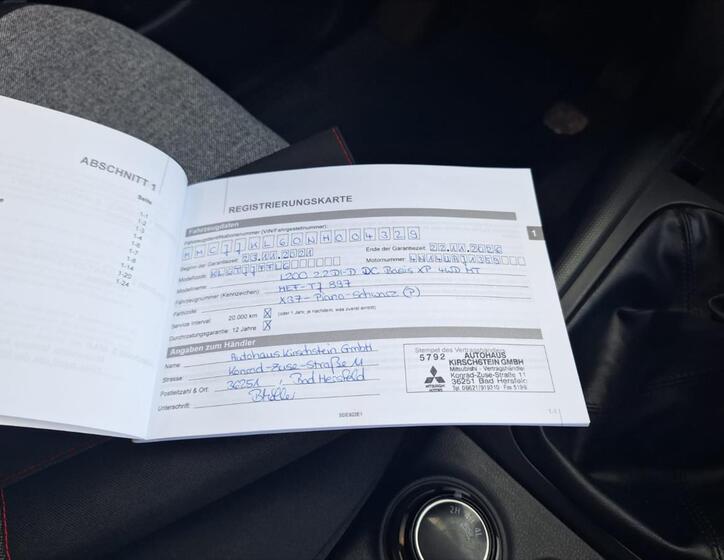 ABSCHNITT 1
Seite
1-1
1-2
1-3
1-4
1-6
1-7
1-8
1-14
1-20
1-24
REGISTRIERUNGSKARTE
1
Fahrzeugdaten
Fahrzeugidentifikationsnummer (VIN/Fahrgestellnummer):
MMCJJKL60NH004329
Beginn der Garantiezeit: 23.11.2021 Ende der Garantiezeit: 22.11.2026
Modellcode: Motornummer:
Modellname: L200 2.2DI-D DC Basis XP 4WD MT
Fahrzeugnummer (Kennzeichen): HEF-T7 897
Farbcode X37-Piano-Schwarz (P)
Service Interval: 20.000 km X (oder 1 Jahr, je nachdem, was zuerst eintritt)
Durchrostungsgarantie: 12 Jahre X
Angaben zum Händler
Name Autohaus Kirschstein GmbH
Strasse Konrad-Zuse-Straße 11
Postleitzahl & Ort: 36251, Bad Hersfeld
Unterschrift:
Stempel des Vertragshändlers
5792 AUTOHAUS
KIRSCHSTEIN GMBH
Mitsubishi - Vertragshändler
Konrad-Zuse-Straße 11
36251 Bad Hersfeld
MITSUBISHI
MOTORS
1-1
2H